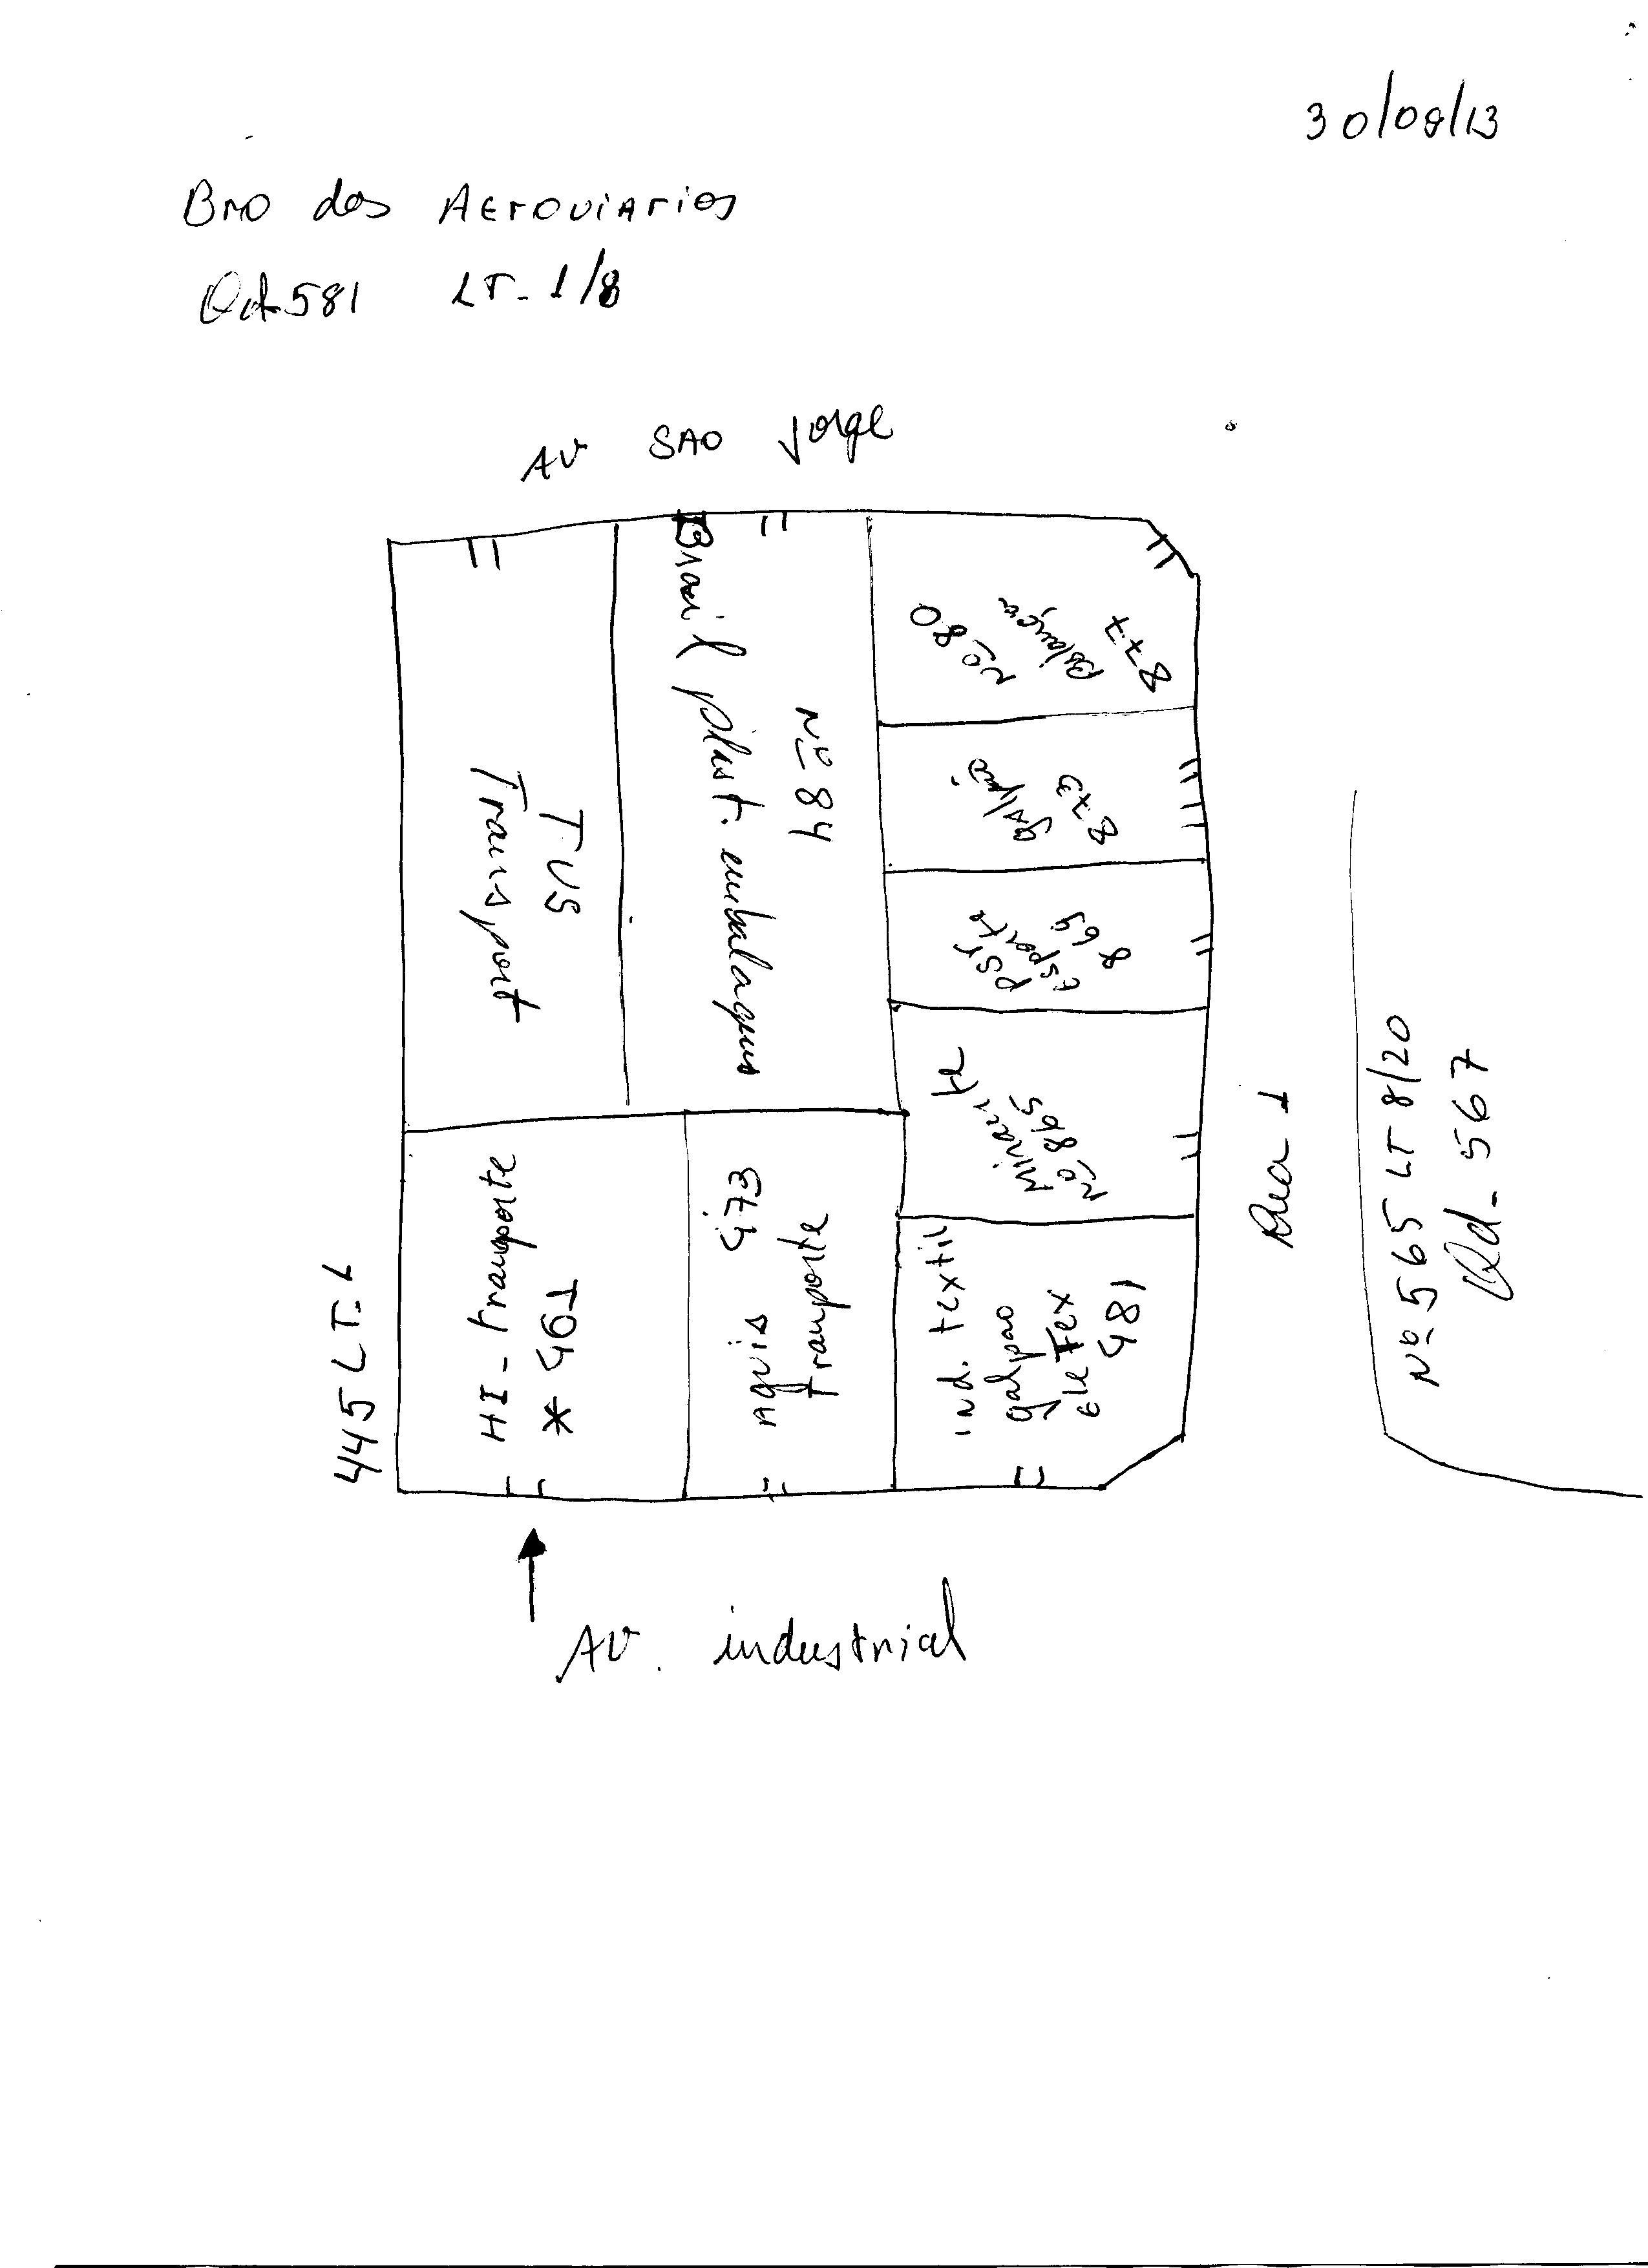 30/08/13
Bro dos Aeroviarios
Qd 581 LT- 1/8
AV SAO Jorge
TVS
Transport
Nº 84
Brasil plast. embalagens
Nº 80
Balança
877
galpão
873
PST
Esporte
869
Nº 865
HI-transporte
* 461
473
Aguia
transporte
ind. textil
galpao
EleTex
481
445 LT-1
Rua 1
Nº 565 LT 8/20
Qd- 567
AV. industrial